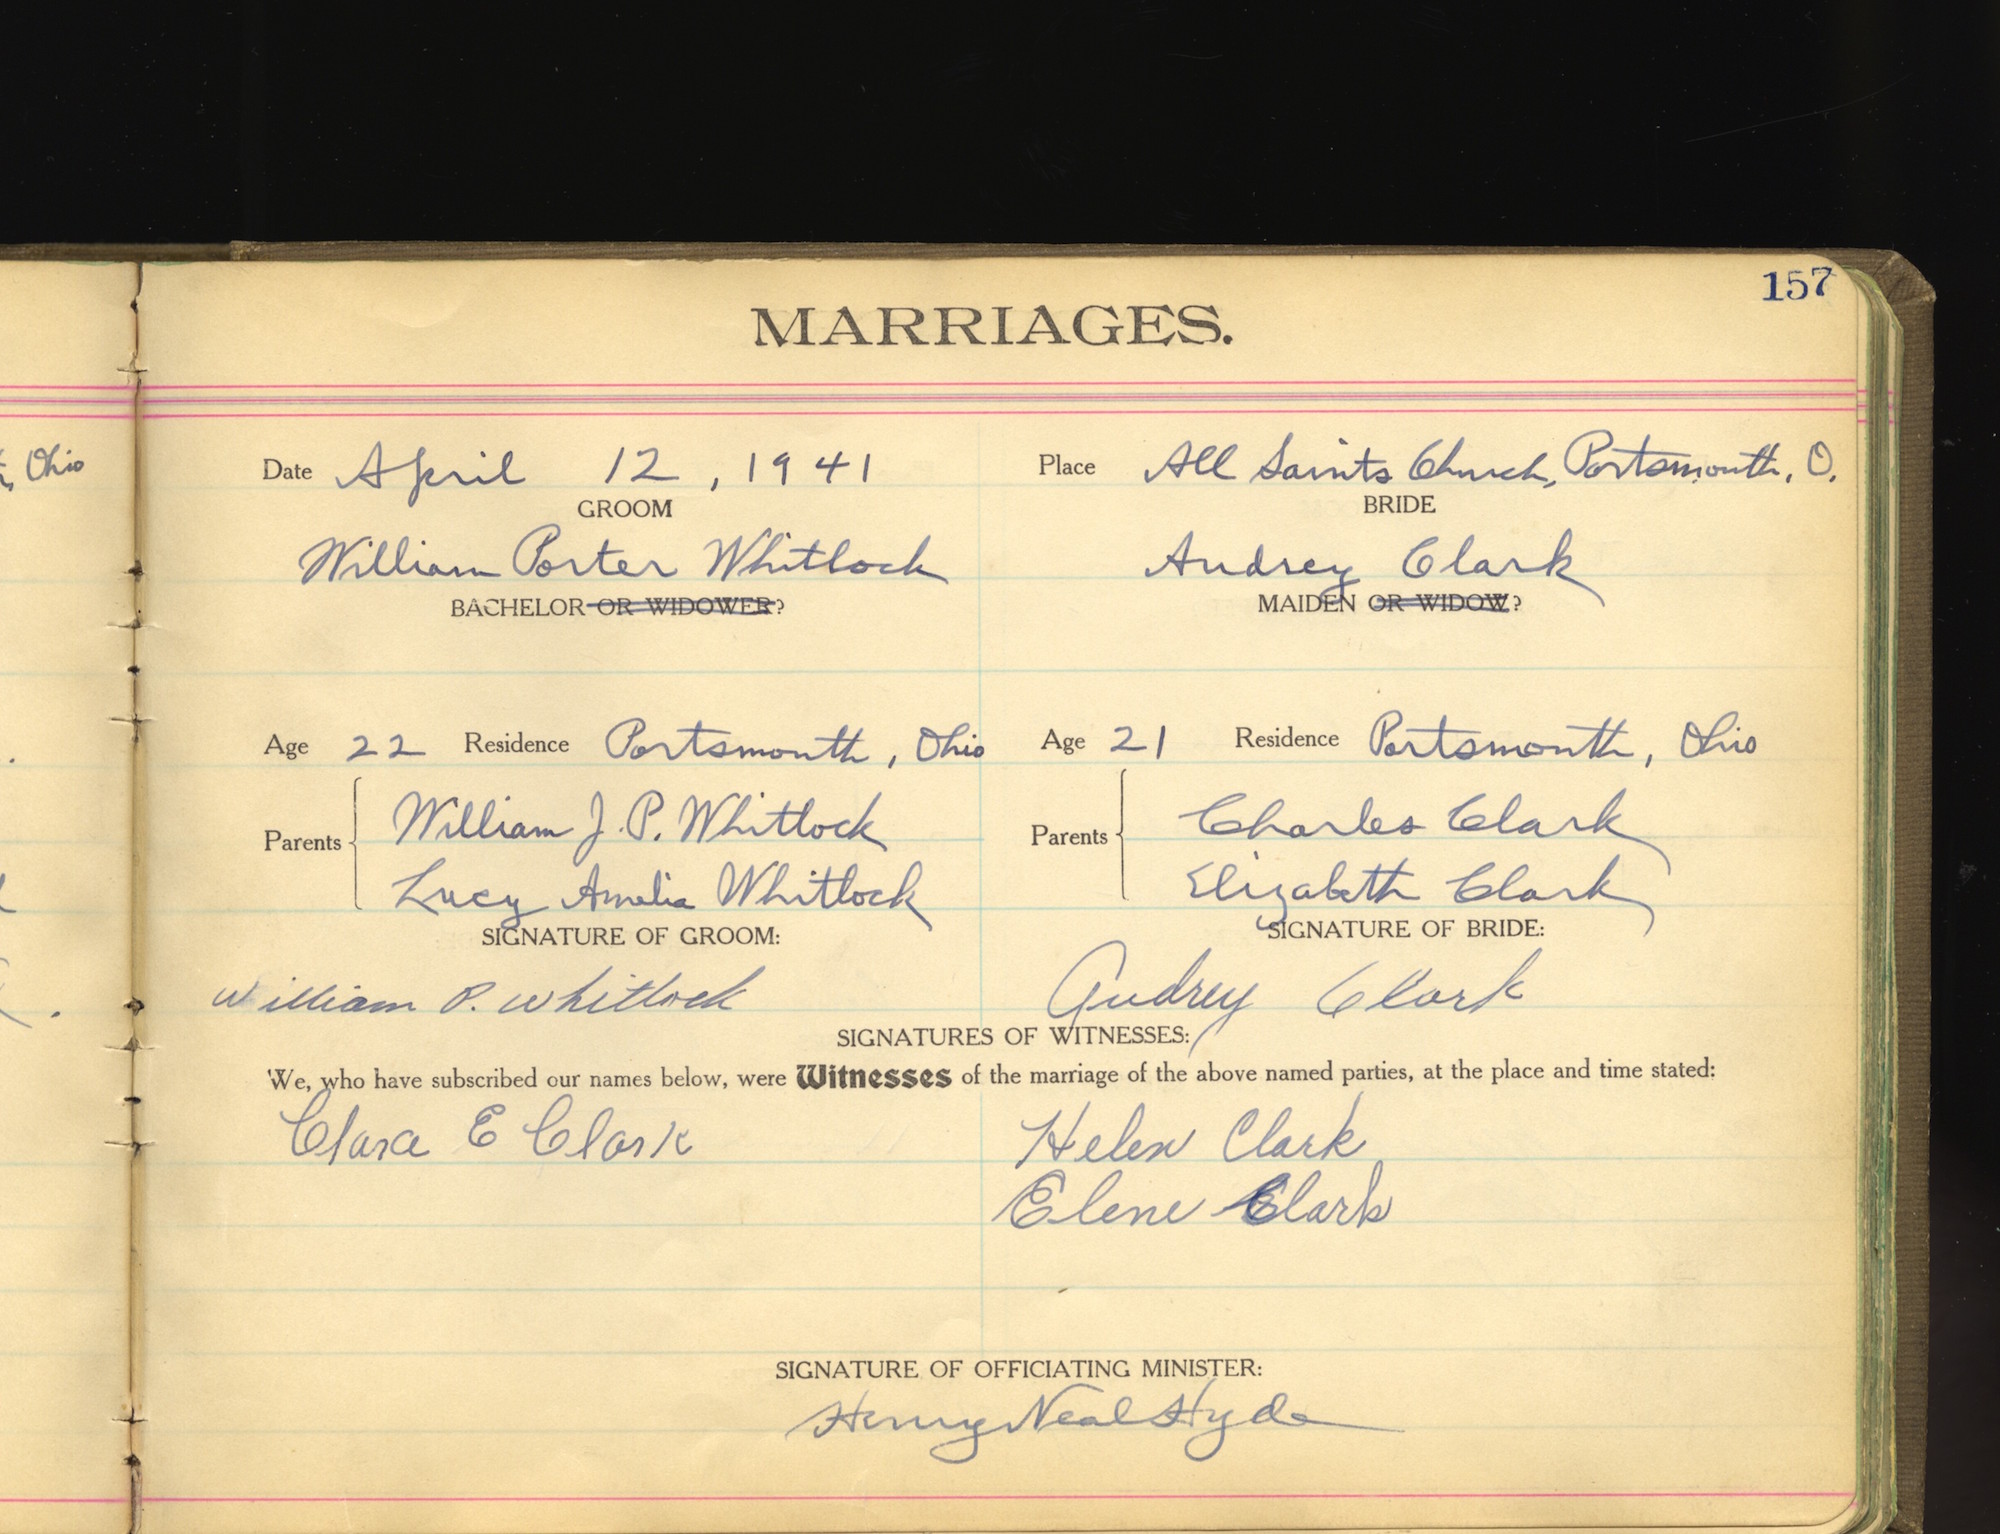 157
MARRIAGES.
, Ohio
Date April 12, 1941 Place All Saints Church, Portsmouth, O.
GROOM BRIDE
William Porter Whitlock Audrey Clark
BACHELOR OR WIDOWER? MAIDEN OR WIDOW?
Age 22 Residence Portsmouth, Ohio Age 21 Residence Portsmouth, Ohio
Parents William J. P. Whitlock Parents Charles Clark
Lucy Amelia Whitlock Elizabeth Clark
SIGNATURE OF GROOM: SIGNATURE OF BRIDE:
William P. Whitlock Audrey Clark
SIGNATURES OF WITNESSES:
We, who have subscribed our names below, were Witnesses of the marriage of the above named parties, at the place and time stated:
Clara E Clark Helen Clark
Elene Clark
SIGNATURE OF OFFICIATING MINISTER:
Henry Neal Hyde